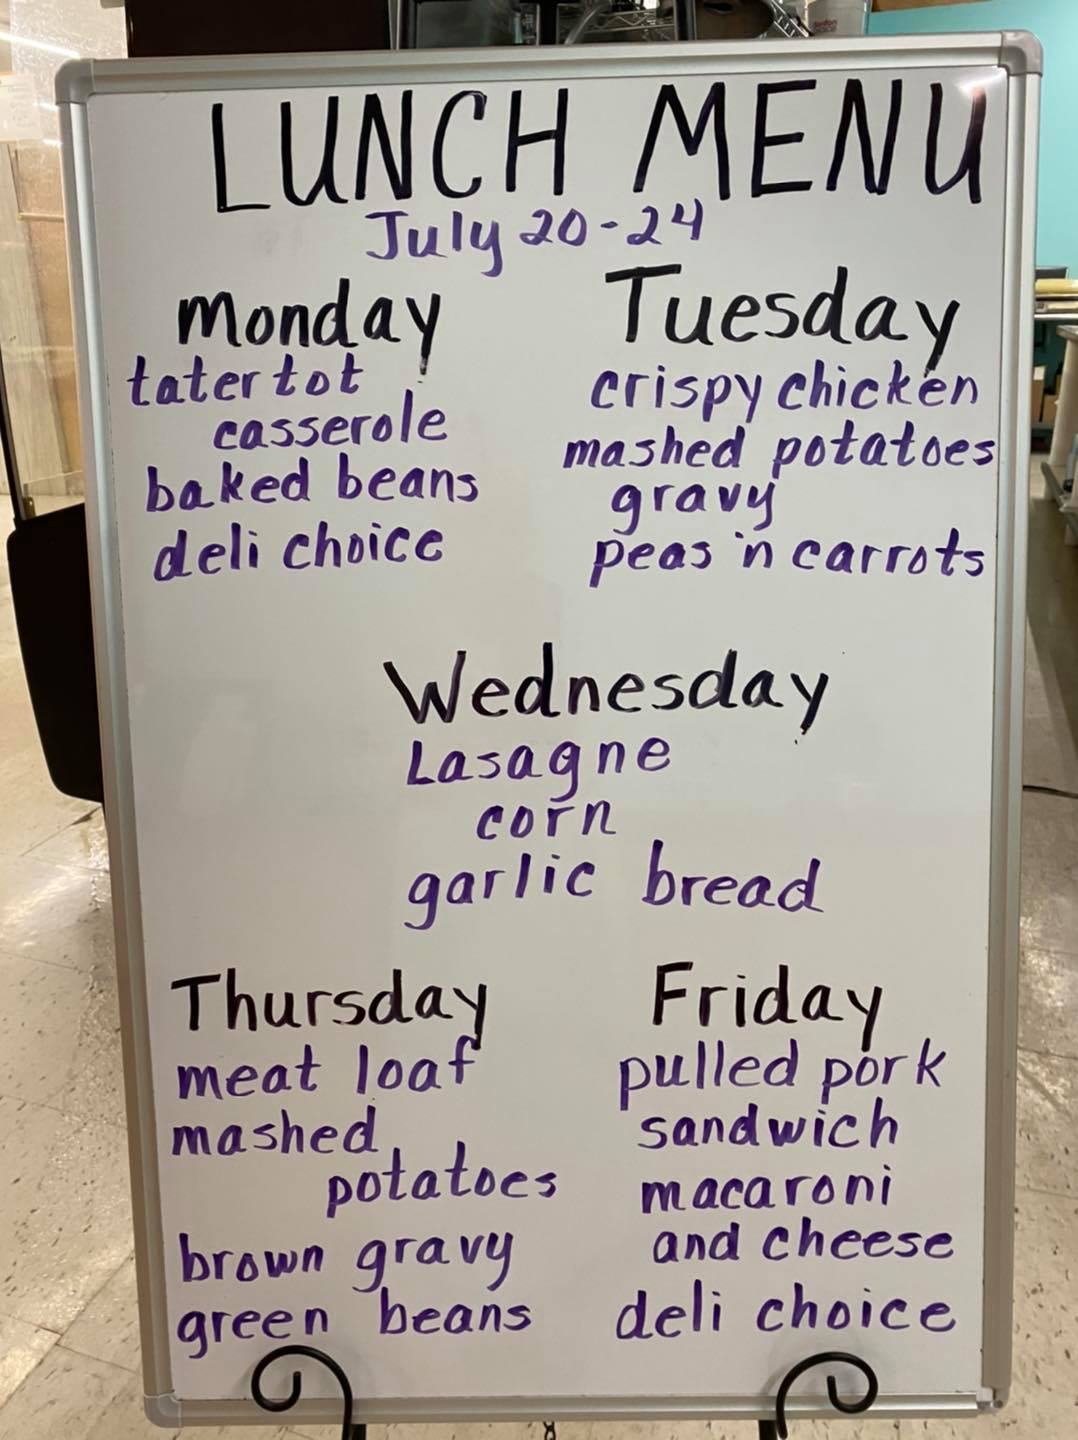 LUNCH MENU
July 20-24
Monday
tater tot
casserole
baked beans
deli choice
Tuesday
crispy chicken
mashed potatoes
gravy
peas 'n carrots
Wednesday
Lasagne
corn
garlic bread
Thursday
meat loaf
mashed
potatoes
brown gravy
green beans
Friday
pulled pork
sandwich
macaroni
and cheese
deli choice